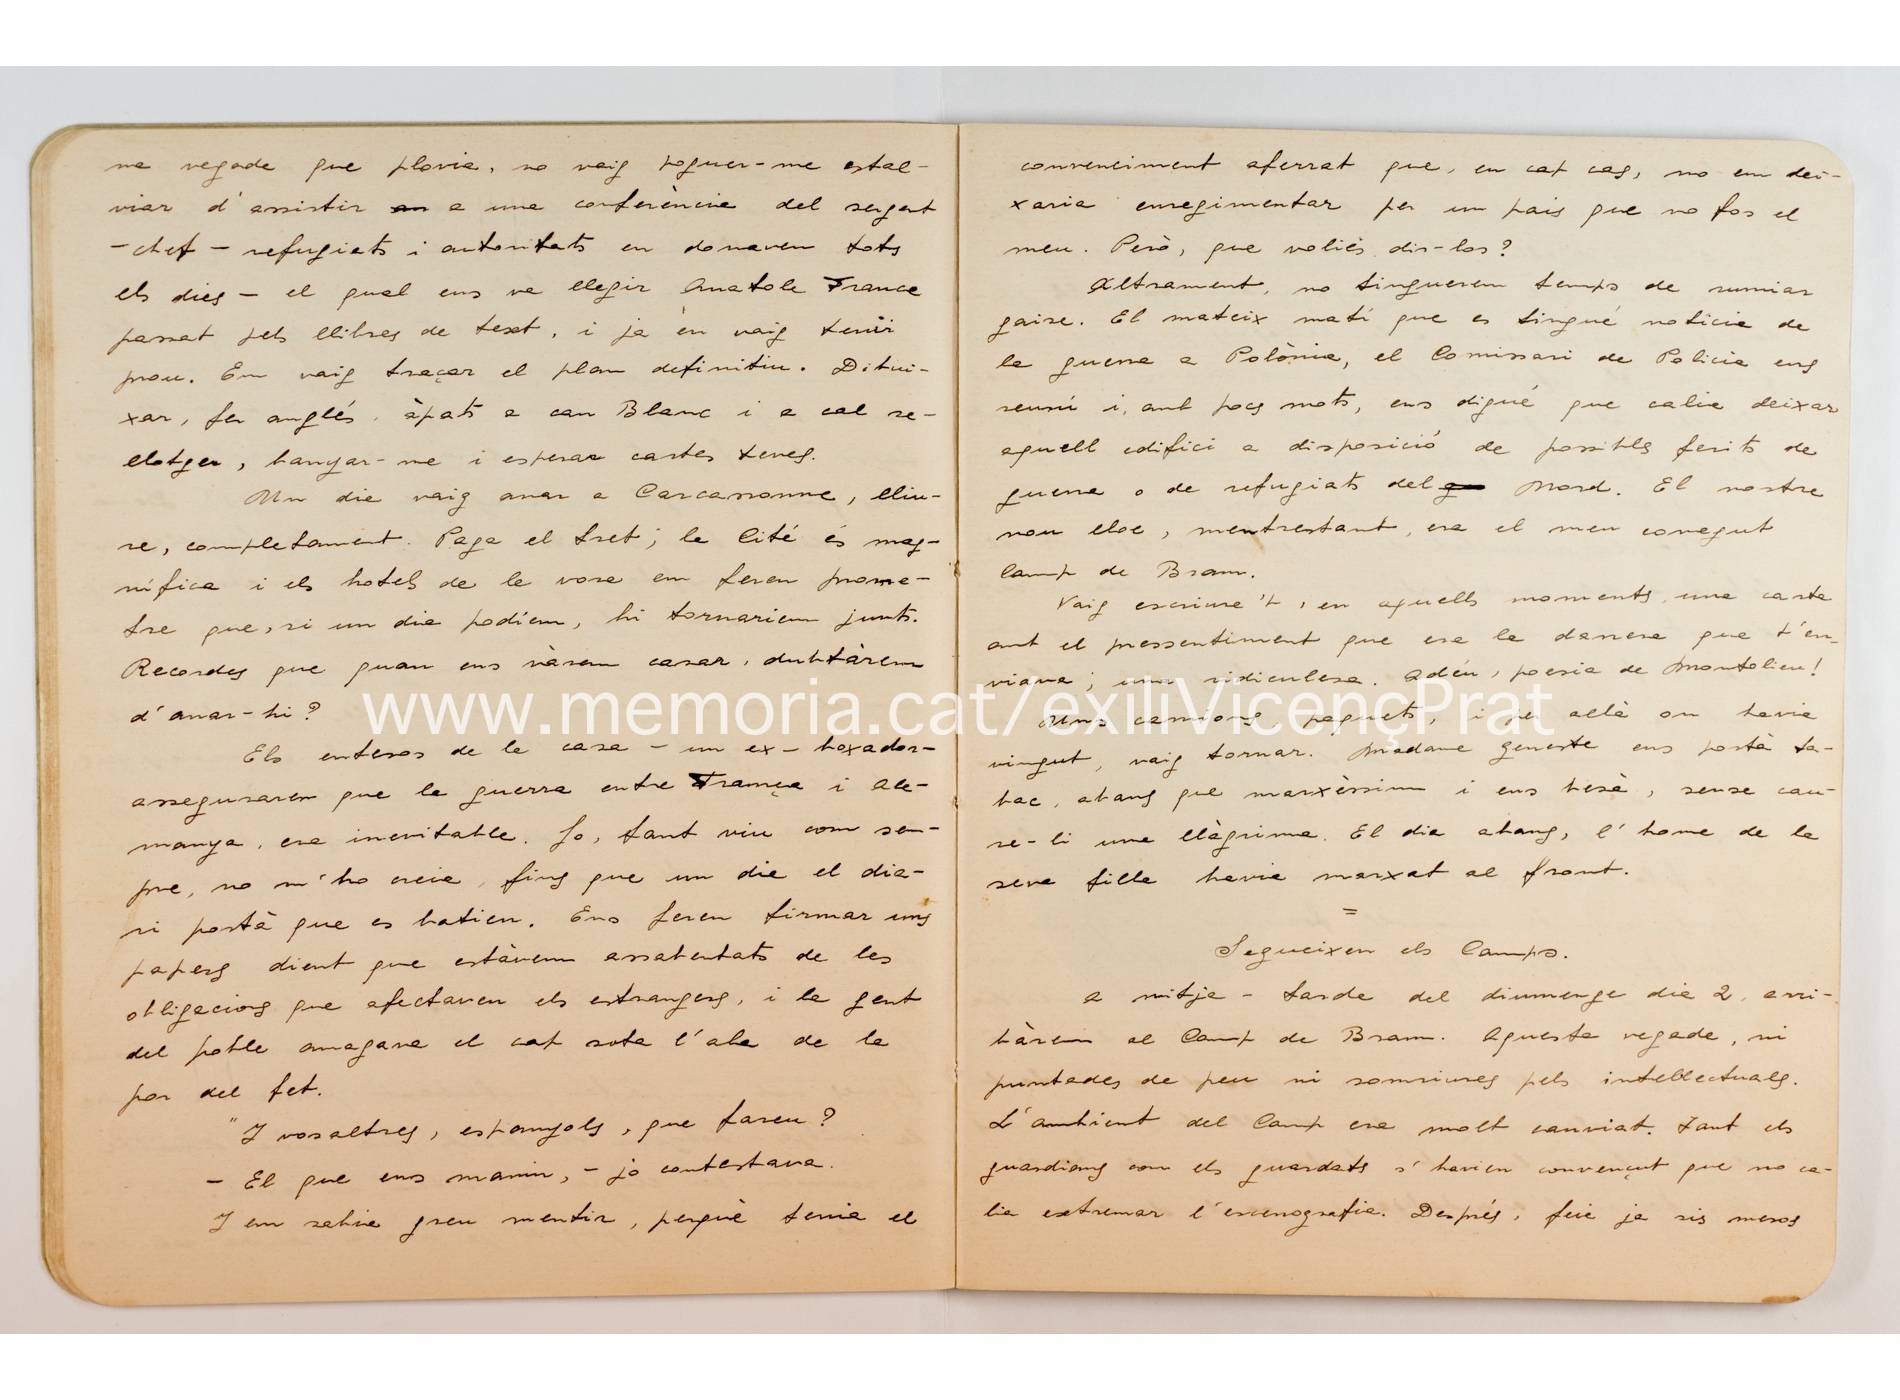 na vegada que plovia, no vaig poguer-me estal-
viar d'assistir a una conferència del sergent
-chef - refugiats i autoritats en donaven tots
els dies - el qual ens va llegir Anatole France
passat pels llibres de text, i ja en vaig tenir
prou. Em vaig traçar el plan definitiu. Dibui-
xar, fer anglés, àpats a can Blanc i a cal re-
llotger, banyar-me i esperar cartes teves.
Un dia vaig anar a Carcassonne, lliu-
re, completament. Paga el tret; la Cité és mag-
nífica i els hotels de la vora em feren prome-
tre que, si un dia podíem, hi tornariem junts.
Recordes que quan ens vàrem casar, dubtàrem
d'anar-hi?
Els entesos de la casa - un ex-boxador-
asseguraren que la guerra entre França i Ale-
manya, era inevitable. Jo, tant viu com sem-
pre, no m'ho creia, fins que un dia el dia-
ri portà que es batien. Ens feren firmar uns
papers dient que estàvem assabentats de les
obligacions que afectaven els estrangers, i la gent
del poble amagava el cap sota l'ala de la
por del fet.
"I vosaltres, espanyols, que fareu?
- El que ens manin, - jo contestava.
I em sabia greu mentir, perquè tenia el
convenciment aferrat que, en cap cas, no em dei-
xaria enregimentar per un pais que no fos el
meu. Però, que volies dir-los?
Altrament, no tinguerem temps de rumiar
gaire. El mateix matí que es tingué noticia de
la guerra a Polònia, el Comissari de Policia ens
reuní i, amb pocs mots, ens digué que calia deixar
aquell edifici a disposició de possibles ferits de
guerra o de refugiats del Nord. El nostre
nou lloc, mentrestant, era el meu conegut
Camp de Bram.
Vaig escriure't, en aquells moments, una carta
amb el pressentiment que era la darrera que t'en-
viava; una ridiculesa. Adéu, poesia de Montolieu!
Uns camions, paquets, i per allà on havia
vingut, vaig tornar. Madame Geneste ens portà ta-
bac, abans que marxèssim i ens besà, sense cau-
re-li una llàgrima. El dia abans, l'home de la
seva filla havia marxat al front.
=
Segueixen els Camps.
A mitja-tarda del diumenge dia 2, arri-
bàrem al Camp de Bram. Aquesta vegada, ni
puntades de peu ni somriures pels intel·lectuals.
L'ambient del Camp era molt canviat. Tant els
guardians com els guardats s'havien convençut que no ca-
lia extremar l'escenografia. Després, feia ja sis mesos
www.memoria.cat/exiliVicençPrat